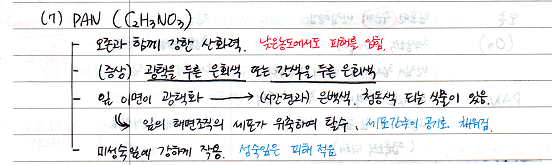 (7) PAN (C2H3NO3)
- 오존과 함께 강한 산화력. 낮은농도에서도 피해를 입힘.
- (증상) 광택을 두른 은회색 또는 갈색을 두른 은회색
- 잎 이면이 광택화 → (시간경과) 은백색, 청동색 되는 식물이 있음.
↳ 잎의 해면조직의 세포가 위축하여 탈수, 세포간극이 공기로 채워짐.
- 미성숙잎에 강하게 작용. 성숙잎은 피해 적음